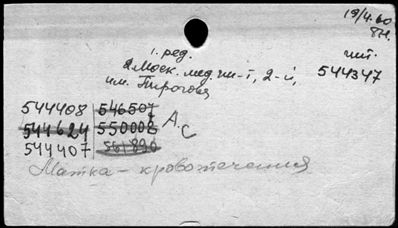 19/4.60
вн.
1. ред.
2. Моск. мед. ин-т, 2-й, чит.
им. Пирогова 544347
544408 546507
544624 550008 А.С
544407 561890
Матка – кровотечения